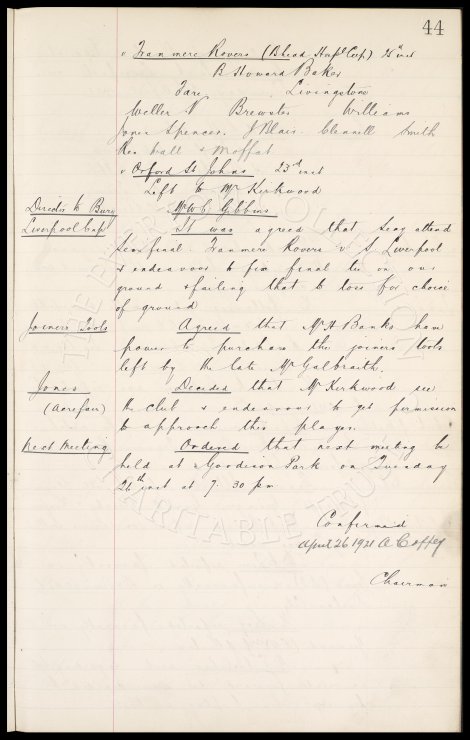 44
v Tranmere Rovers (B'head Hosp'l Cup) 25th inst
B. Howard Baker
Fare. Livingstone
Weller V Brewster Williams
Jones Spencer. J Blair. Clennell Smith
Rea Wall & Moffat
v Oxford St Johns 23rd inst
Left to Mr Kirkwood
Director to Bury Mr W C Gibbins
Liverpool Cup It was agreed that Secy attend
Semi final Tranmere Rovers v S. Liverpool
& endeavour to fix final tie on our
ground & failing that to toss for choice
of ground
Joiners Tools Agreed that Mr H Banks have
power to purchase the joiners tools
left by the late Mr Galbraith.
Jones Decided that Mr Kirkwood see
(Acrefair) the club & endeavour to get permission
to approach this player.
Next Meeting Ordered that next meeting be
held at Goodison Park on Tuesday
26th inst at 7.30 pm
Confirmed
April 26 1921 A Coffey
Chairman
CHARITABLE TRUST